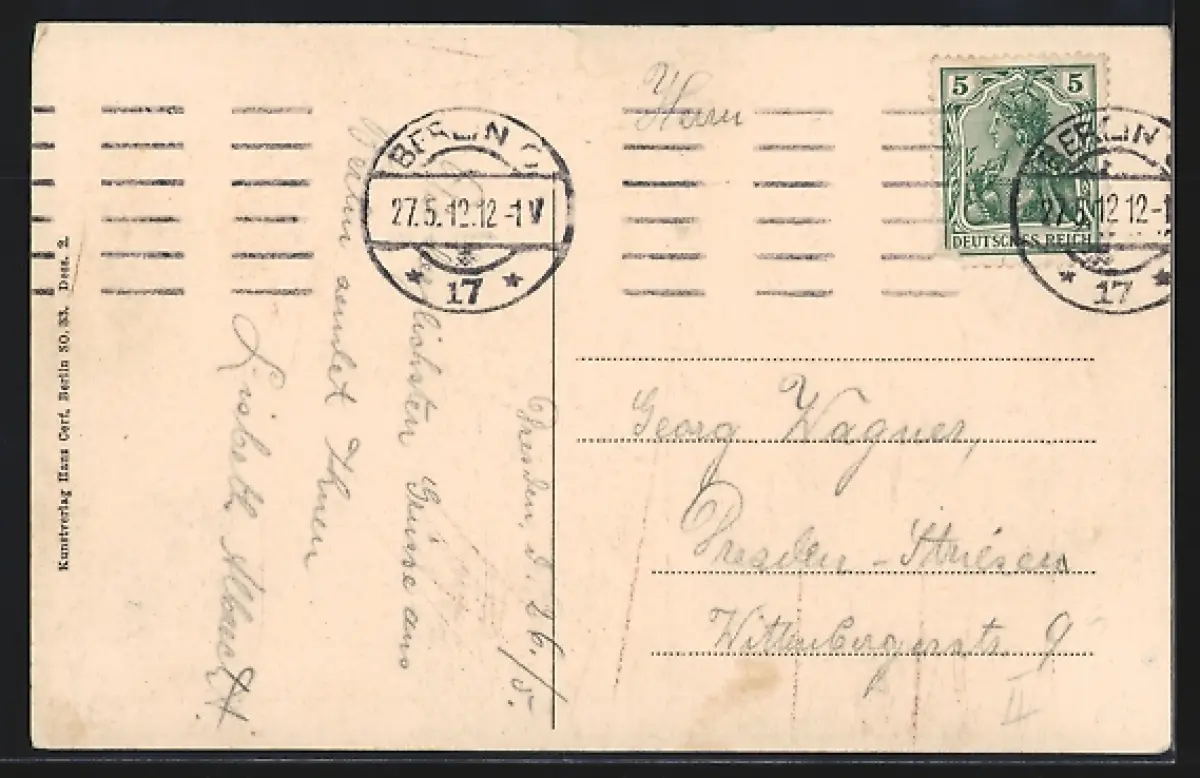 Kunstverlag Hans Cerf, Berlin SO. 33. Dess. 2.
Dresden, d. 26./5.
Herzlichsten Grüsse aus
Berlin sendet Ihnen
Lisbeth
BERLIN O.
27.5.12.12-1V
* 17 *
5 5
DEUTSCHES REICH
BERLIN
27.5.12 12-1
* 17 *
Herrn
Georg Wagner,
Dresden-Striesen
Wittenbergerstr. 9
II